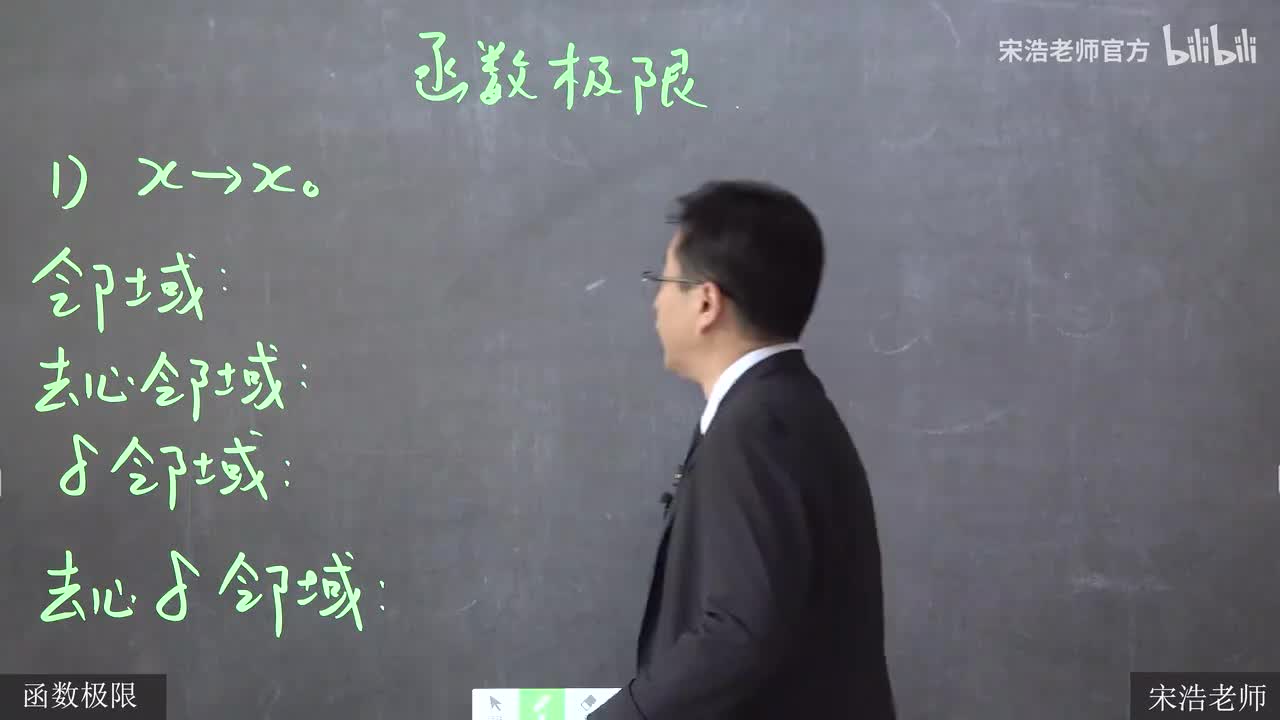 函数极限
宋浩老师官方 bilibili
1) x→x₀
邻域:
去心邻域:
δ邻域:
去心δ邻域:
函数极限
宋浩老师